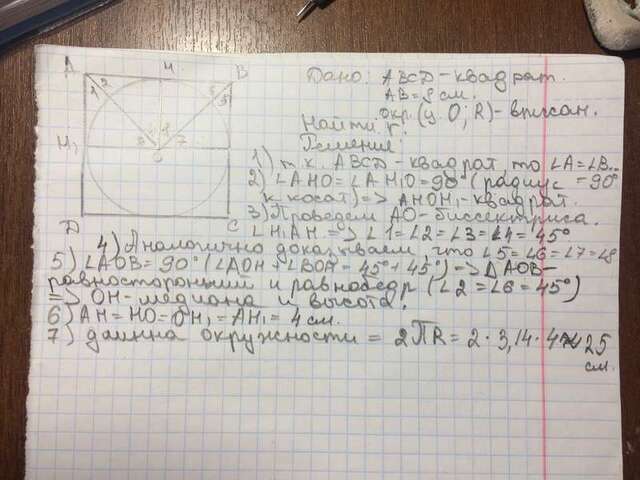 A H B
1 2 6 5
Дано: ABCD-квадрат.
AB=8 см.
окр.(у.O; R)-вписан.
Найти: r.
H₁ 3 4 8 7
O
D C
Решение:
1) т.к. ABCD-квадрат, то ∠A=∠B...=90°
2) ∠AHO=∠AH₁O=90° (радиус
к касат)=> AHOH₁-квадрат.
3) Проведем AO-биссектриса.
∠H₁AH. => ∠1=∠2=∠3=∠4=45°
4) Аналогично доказываем, что ∠5=∠6=∠7=∠8
5) ∠AOB=90° (∠AOH+∠BOH=45°+45°)=>△AOB-
равносторонний и равнобедр (∠2=∠6=45°)
=> OH-медиана и высота.
6) AH=HO=OH₁=AH₁=4 см.
7) длинна окружности = 2ПR=2·3,14·4≈25
см.